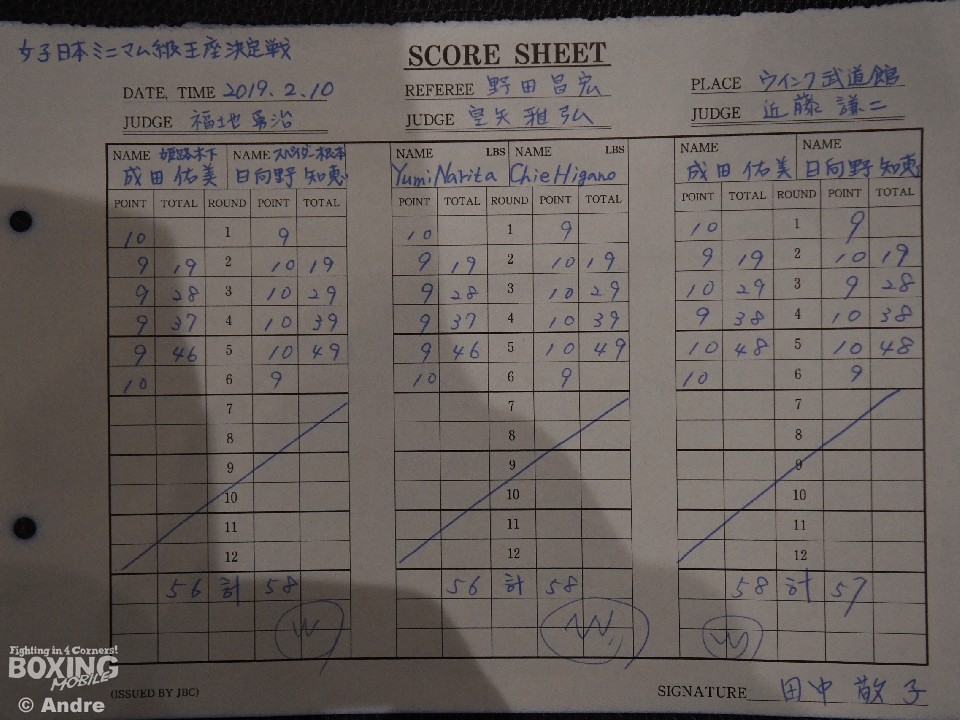 女子日本ミニマム級王座決定戦
SCORE SHEET
DATE, TIME 2019.2.10 REFEREE 野田昌宏 PLACE ウインク武道館
JUDGE 福地勇治 JUDGE 雅弘 JUDGE 近藤謙二
NAME 姫路木下 NAME スパイダー根本 NAME LBS NAME LBS NAME NAME
成田佑美 日向野知恵 Yumi Narita Chie Higano 成田佑美 日向野知恵
POINT TOTAL ROUND POINT TOTAL POINT TOTAL ROUND POINT TOTAL POINT TOTAL ROUND POINT TOTAL
10 1 9 10 1 9 10 1 9
9 19 2 10 19 9 19 2 10 19 9 19 2 10 19
9 28 3 10 29 9 28 3 10 29 10 29 3 9 28
9 37 4 10 39 9 37 4 10 39 9 38 4 10 38
9 46 5 10 49 9 46 5 10 49 10 48 5 10 48
10 6 9 10 6 9 10 6 9
7 7 7
8 8 8
9 9 9
10 10 10
11 11 11
12 12 12
56 計 58 56 計 58 58 計 57
W W W
(ISSUED BY JBC) SIGNATURE 田中敬子
Fighting in 4 Corners!
BOXING
MOBILE
© Andre